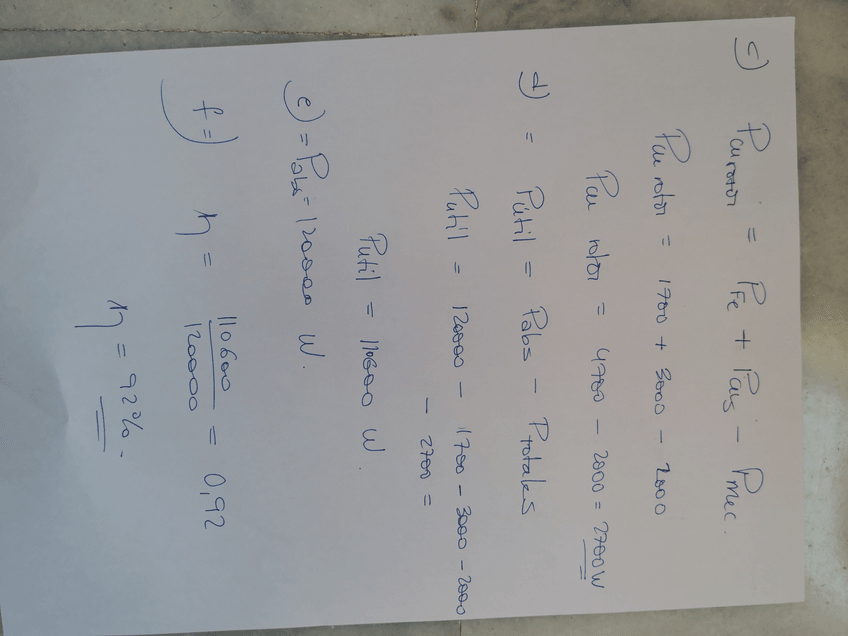 c) Pcu rotor = PFe + Pcus - Pmec.
Pcu rotor = 1700 + 3000 - 2000
Pcu rotor = 4700 - 2000 = 2700W
d) = Pútil = Pabs - Ptotales
Pútil = 120000 - 1700 - 3000 - 2000
- 2700 =
Pútil = 110600 W.
e) = Pabs = 120000 W.
f =) η = 110600 / 120000 = 0,92
η = 92%.